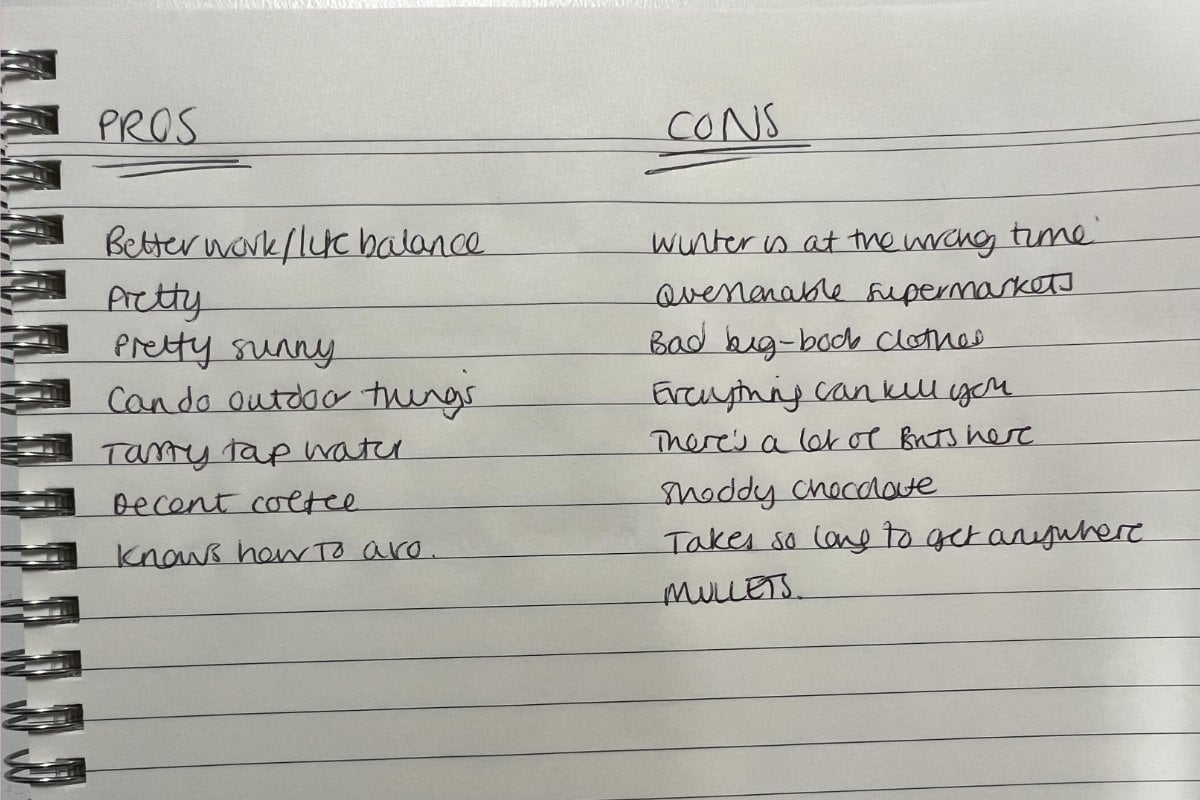 PROS
Better work/life balance
Pretty
Pretty sunny
Can do outdoor things
Tasty tap water
Decent coffee
Knows how to avo.
CONS
Winter is at the wrong time
Questionable supermarkets
Bad big-boob clothes
Everything can kill you
There's a lot of Brits here
Shoddy chocolate
Takes so long to get anywhere
MULLETS.